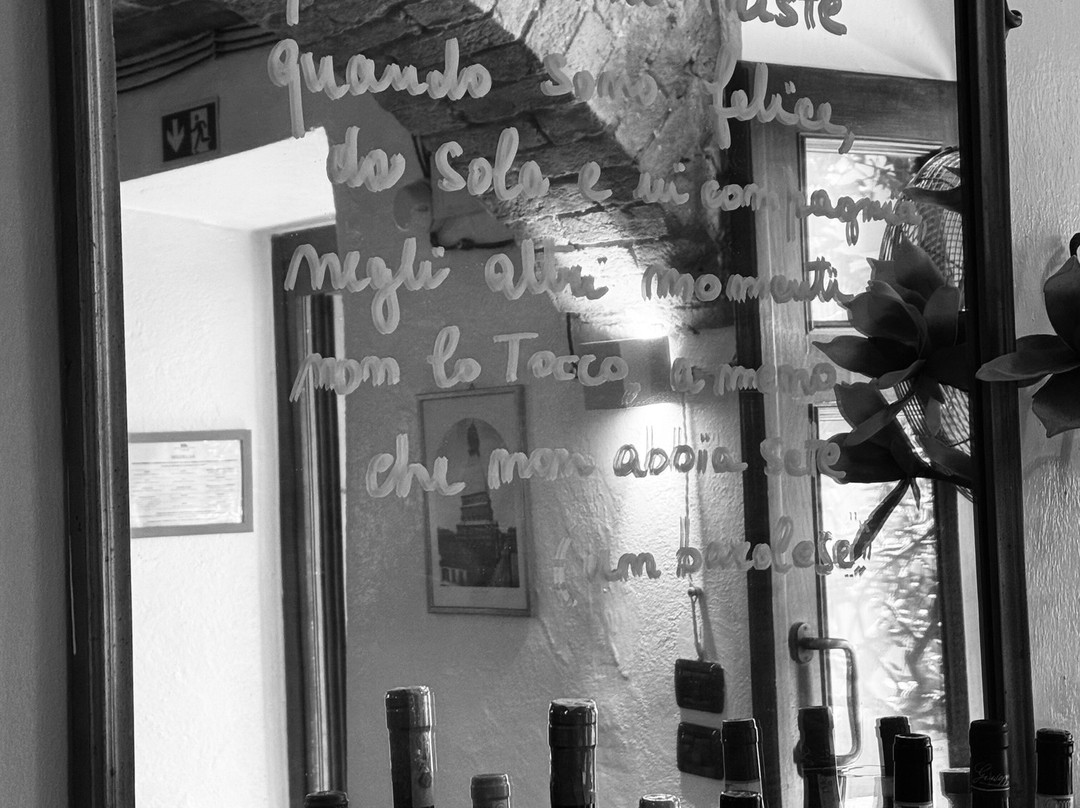 quando sono felice,
da sola e in compagnia
negli altri momenti
non lo Tocco, a meno
che non abbia sete
"un parolese"